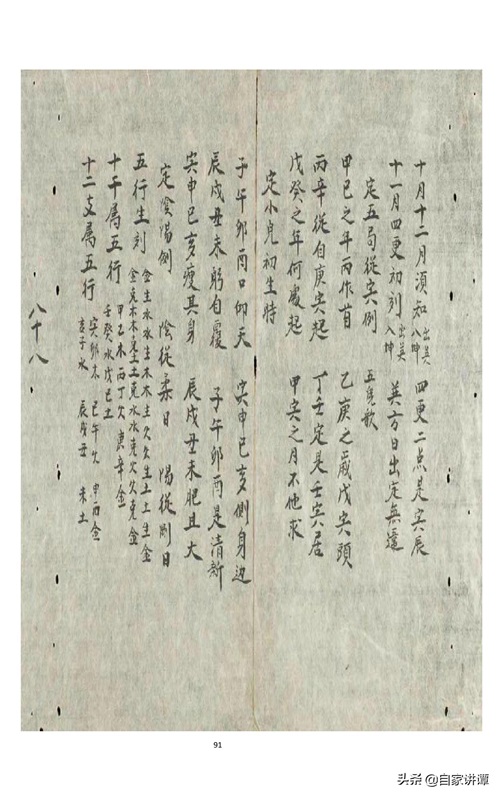 十月十二月須知 出巽入坤 四更二点是寅辰
十一月四更初刻 出巽入坤 英方日出定無遺
定五局從寅例 五虎歌
甲巳之年丙作首 乙庚之歲戊寅頭
丙辛從自庚寅起 丁壬定是壬寅居
戊癸之年何處起 甲寅之月不他求
定小兒初生時
子午卯酉口仰天 寅申巳亥側身边
辰戌丑未躬自覆 子午卯酉是清新
寅申巳亥瘦其身 辰戌丑未肥且大
定陰陽例 陰從柔日 陽從剛日
五行生刻 金生水水生木木生火火生土土生金
金克木木克土土克水水克火火克金
十干属五行 甲乙木丙丁火庚辛金
壬癸水戊巳土
十二支属五行 寅卯木 巳午火 申酉金
亥子水 辰戌丑未土
八十八
91
头条 @自家讲谭